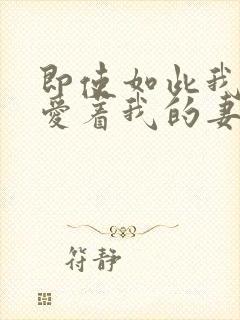 即使如此我
爱着我的妻
符静